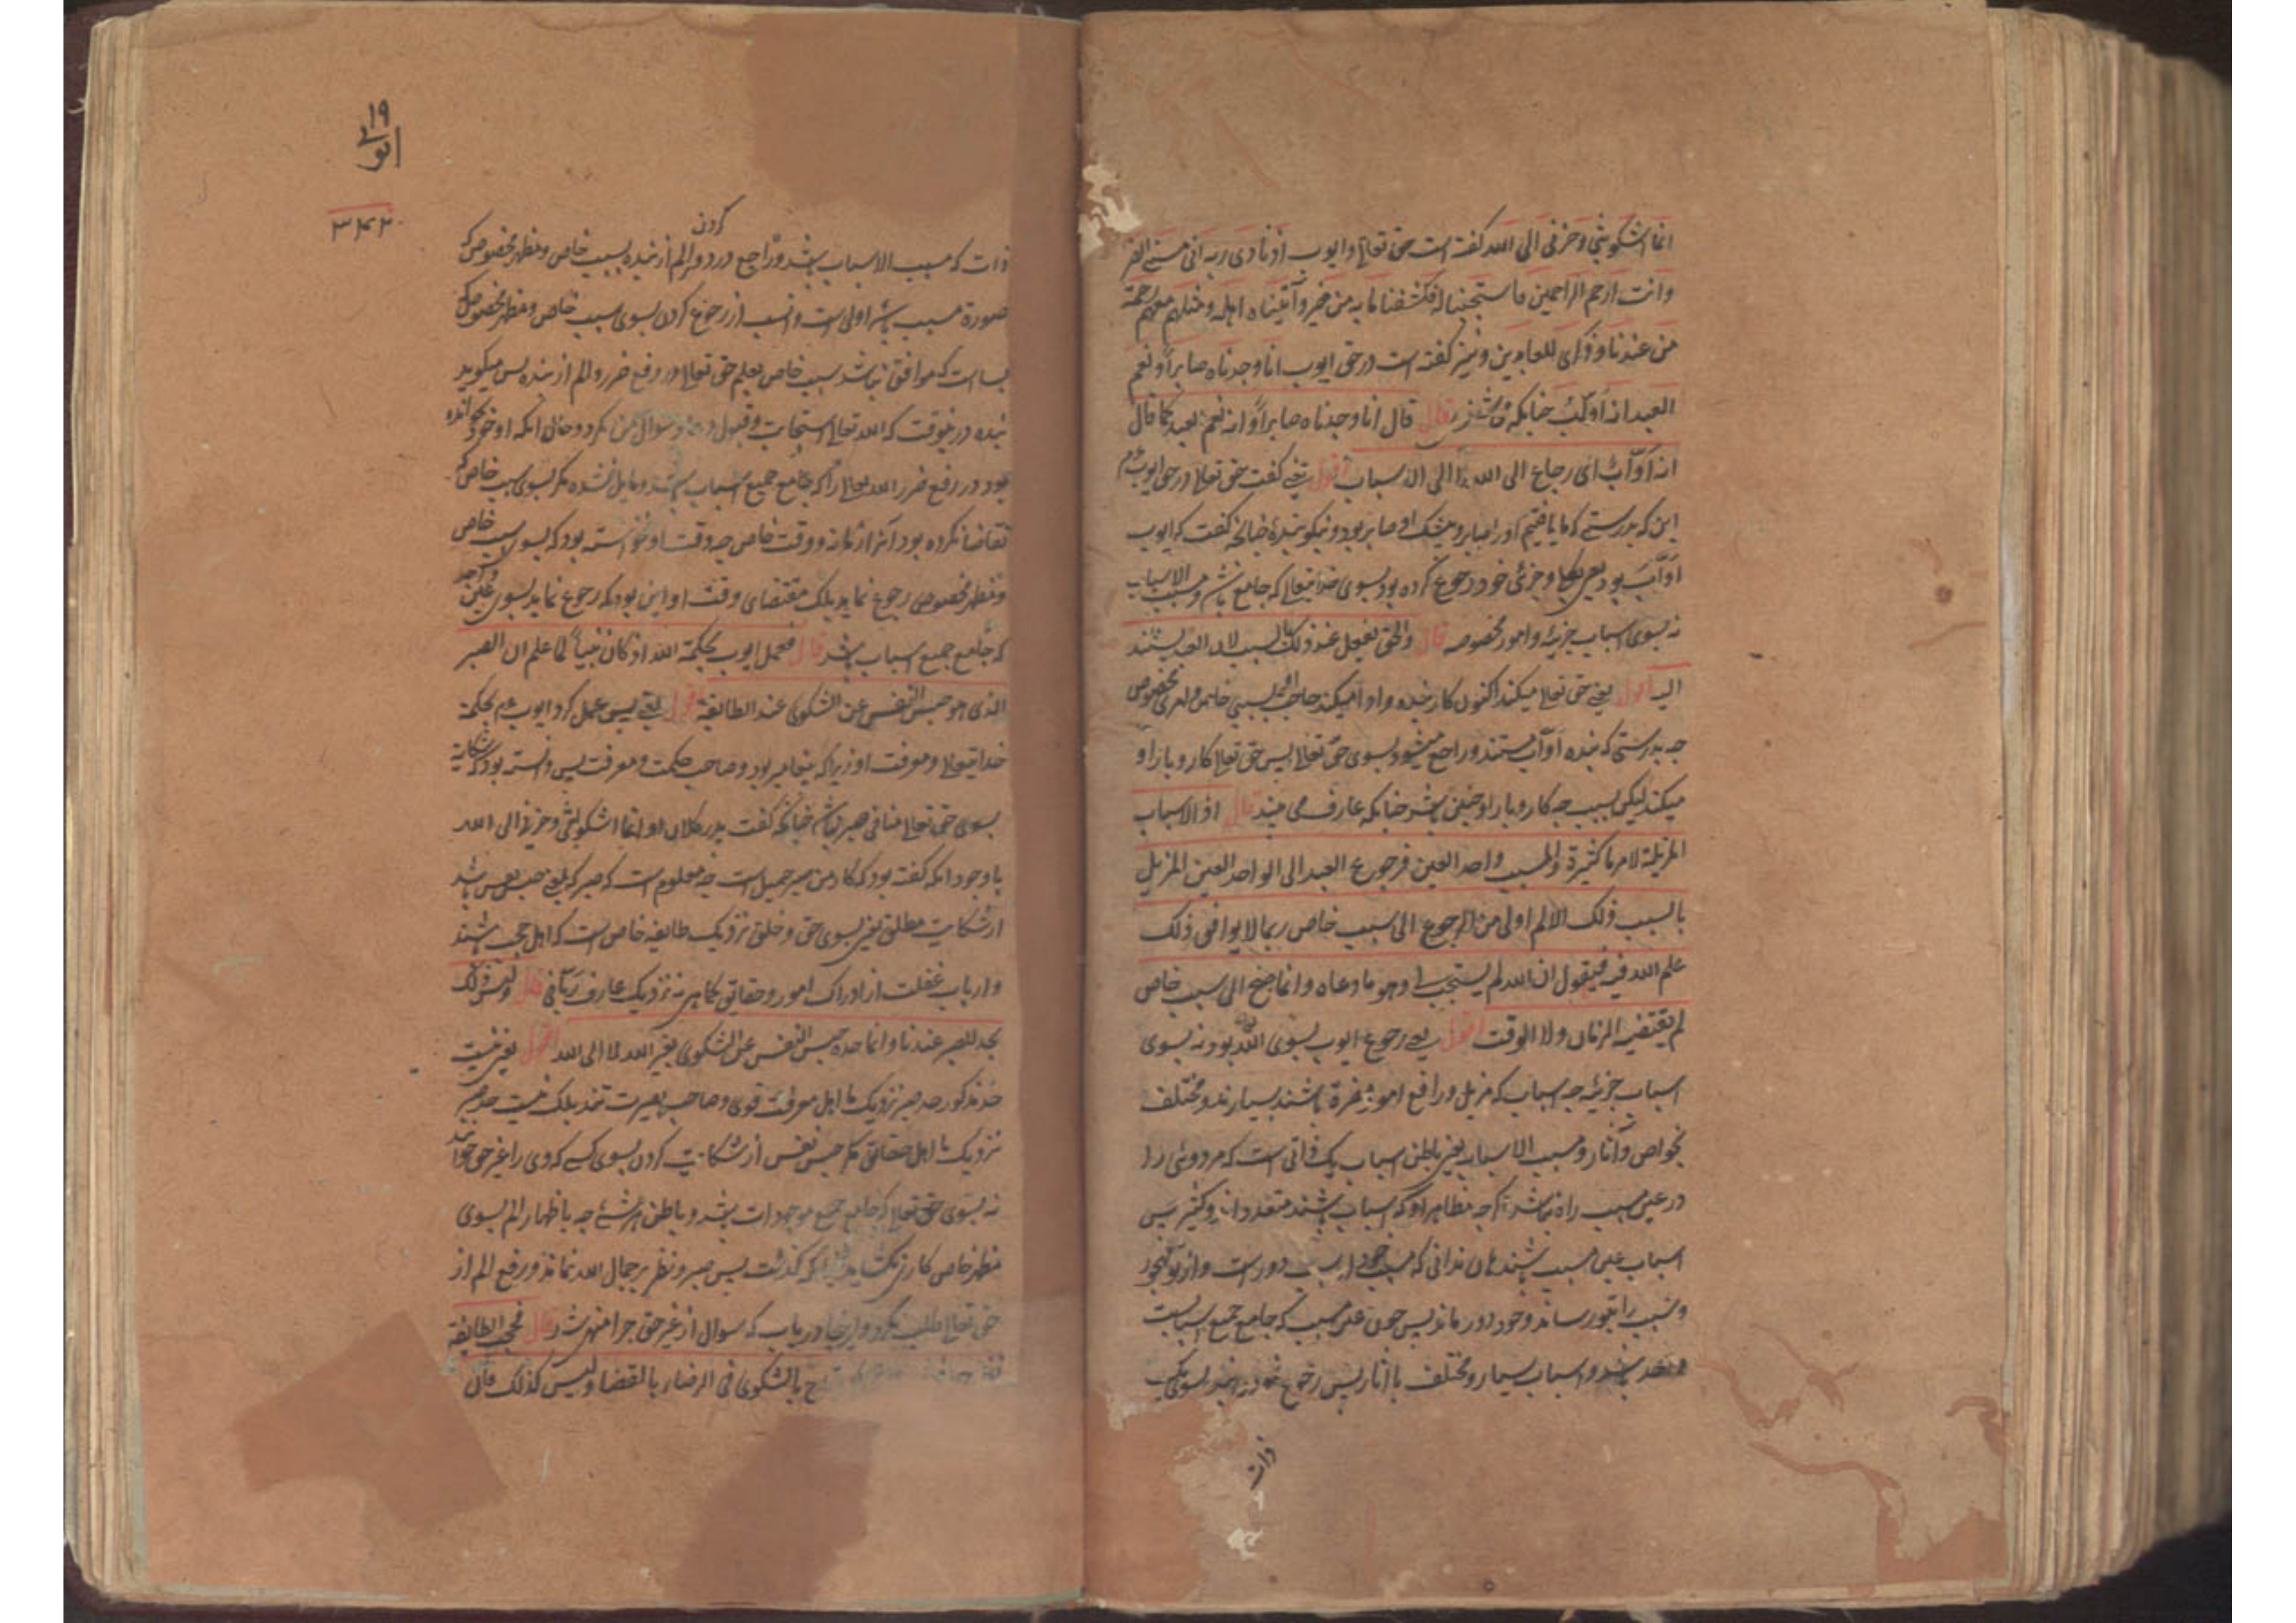 انما اشکو بثی و حزنی الی الله گفته است حق تعالی و ایوب اذ نادی ربه انی مسنی الضر
و انت ارحم الراحمین فاستجبنا له فکشفنا ما به من ضر و آتیناه اهله و مثلهم معهم رحمة
من عندنا و ذکری للعابدین و نیز گفته است در حق ایوب انا وجدناه صابراً و نعم
العبد انه اوّاب چنانکه قال قال انا وجدناه صابراً و انه نعم العبد کما قال
انه اوّاب ای رجاع الی الله لا الی الاسباب اقول یعنی گفت حق تعالی در حق ایوب
این که بدرستی که ما یافتیم او را صابر و بیشک او صابر بود و نیکو بنده چنانکه گفت که ایوب
اوّاب بود یعنی خود رجوع کرده بود بسوی خدایتعالی که جامع و مسبب الاسباب
نه بسوی اسباب جزئیه و امور مخصوصه قال والحق یفعل عند ذلک بالسبب لان العبد یستند
الیه اقول یعنی حق تعالی میکند اکنون کار بنده
چه بدرستی که بنده اوّاب مستند و راجع میشود بسوی حق تعالی پس حق تعالی کار و بار او
میکند لیکن بسبب چه کار و بار او چنین باشد چنانکه عارف می بیند قال اذ الاسباب
المزیلة لامر ما کثیرة والمسبب واحد العین فرجوع العبد الی الواحد العین المزیل
بالسبب ذلک الالم اولی من الرجوع الی سبب خاص ربما لا یوافق ذلک
علم الله فیه فیقول ان الله لم یستجب لی و هو ما دعاه و انما جنح الی سبب خاص
لم یقتضیه الزمان ولا الوقت اقول یعنی رجوع ایوب بسوی الله بود نه بسوی
اسباب جزئیه چه اسباب که مزیل و رافع امور باشند بسیارند و مختلف
بخواص و آثار و مسبب الاسباب یعنی باطن اسباب یک ذاتی است که مر دوئی را
در عین مسبب راه نباشد اگرچه مظاهر او که اسباب باشند متعدد اند و کثیر پس
اسباب عین مسبب باشند هان ندانی که مسبب سبب دور است و از تو مهجور
و سبب را بتو رساند و خود دور ماند پس چون عین مسبب که جامع جمیع اسباب است
واحد باشد و اسباب بسیار و مختلف با آثار پس رجوع
ذات
۱۹
ایوبی
۳۴۲
کردن
ذات که مسبب الاسباب باشد و راجع در دفع الم از بنده بسبب خاص و مظهر مخصوص که
صورة مسبب باشد اولی است و انسب از رجوع کردن بسوی سبب خاص و مظهر مخصوص که
بسا است که موافق نباشد سبب خاص بعلم حق تعالی در رفع ضرر و الم از بنده پس میگوید
بنده درینوقت که الله تعالی استجابت و قبول دعا و سوال من نکرد و حال آنکه او خود نخوانده
بود در رفع ضرر الله تعالی را که جامع جمیع اسباب باشد و مایل نشده مگر بسوی سبب خاص که
تقاضا نکرده بود آنرا زمانه و وقت خاص چه وقت او نخواسته بود که بسوی سبب خاص
و مظهر مخصوص رجوع نماید بلکه مقتضای وقت او این بود که رجوع نماید بسوی عین واحد
که جامع جمیع اسباب باشد قال فعمل ایوب بحکمة الله اذ کان نبیاً لما علم ان الصبر
الذی هو حبس النفس عن الشکوی عند الطایفة اقول یعنی پس عمل کرد ایوب ع م بحکمة
خدایتعالی و معرفت او زیرا که پیغامبر بود و صاحب حکمت و معرفت پس دانسته بود که شکایة
بسوی حق تعالی منافی صبر نباشد چنانکه گفت پدر کلان او انما اشکو بثی و حزنی الی الله
باوجود آنکه گفته بود که کار من صبر جمیل است چه معلوم است که صبر که یعنی حبس نفس باشد
از شکایت مطلق یعنی بسوی حق و خلق نزدیک طایفه خاص است که اهل حجب باشند
و ارباب غفلت از ادراک امور و حقایق کما هی نه نزدیک عارف ربانی قال و لیس ذلک
بحد للصبر عندنا و انما حده حبس النفس عن الشکوی لغیر الله لا الی الله اقول یعنی نیست
حد مذکور حد صبر نزدیک ما اهل معرفت قوی و صاحب بصیرت تند بلکه نیست حد صبر
نزدیک ما اهل حقایق مگر حبس نفس از شکایت کردن بسوی کسی که وی را غیر حق خواند
نه بسوی حق تعالی که جامع جمیع موجودات باشد و باطن هر شئ چه باظهار الم بسوی
مظهر خاص کاری نکشاید چنانکه گذشت پس صبر و نظر بر جمال الله نماند و رفع الم از
حق تعالی طلب نکرد و اینجا دریاب که سوال از غیر حق چرا منهی شد قال فحجب الطایفة
بالشکوی فی الرضاء بالقضا و لیس کذلک فان